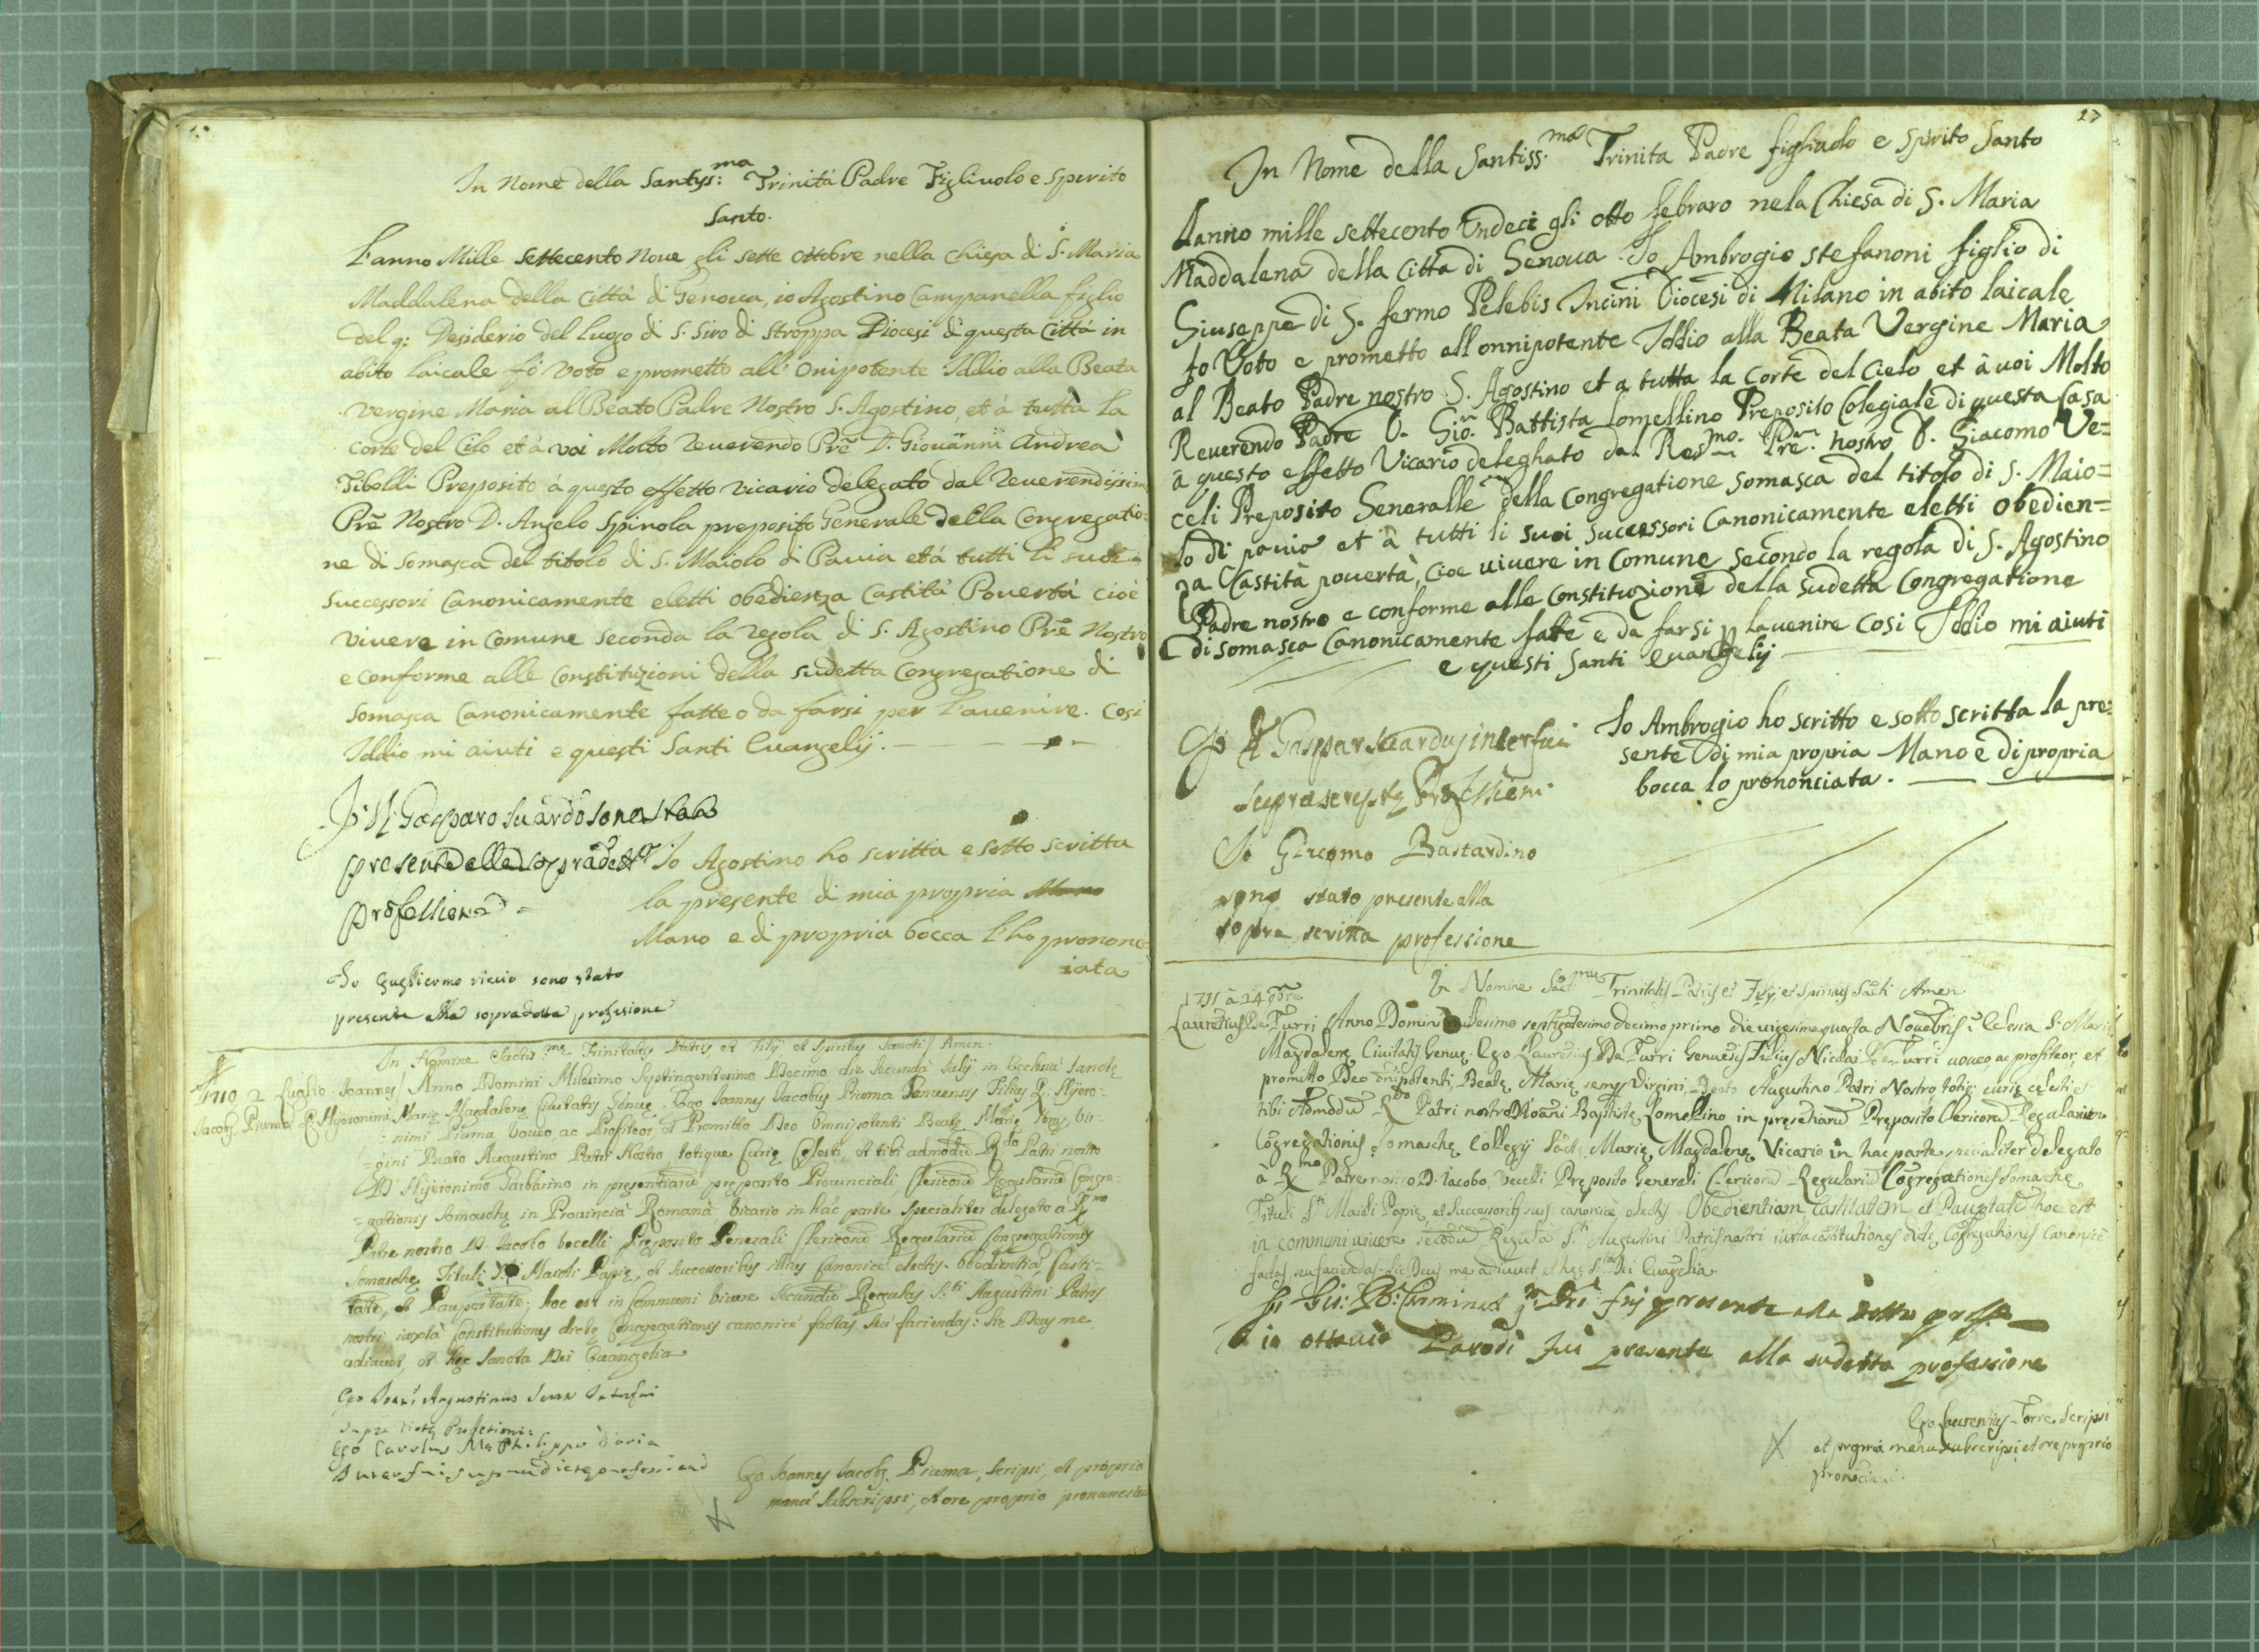 In Nome della Santiss: ma Trinitá Padre Figliuolo e Spirito
Santo.
L'anno Mille settecento Noue gli sette ottobre nella chiesa di S. Maria
Maddalena della Città di Genoua, io Agostino Campanella figlio
del q: Desiderio del luogo di S. Siro di Stroppa Diocesi di questa Cittá in
abito laicale fò voto e prometto all' Onipotente Iddio alla Beata
Vergine Maria al Beato Padre Nostro S. Agostino, et á tutta la
Corte del Cielo et à voi Molto Reuerendo Prē D. Giouanni Andrea
Tiboldi Preposito á questo effetto vicario delegato dal Reuerendissim
Prē Nostro D. Angelo Spinola preposito Generale della Congregatio=
ne di Somasca del titolo di S. Maiolo di Pauia et á tutti li suoi
Successori Canonicamente eletti obedienza Castitá Pouertá cioè
viuere in Comune Seconda la regola di S. Agostino Prē Nostro
e conforme alle Constitutioni della sudetta Congregatione di
Somasca Canonicamente fatte o da farsi per l'auenire. Cosi
Iddio mi aiuti e questi Santi Euangelij.
Gasparo Suardo sono stato
presente della sopradett
professione
Io Agostino ho scritta e sotto scritta
la presente di mia propria
Mano e di propria bocca l'ho pronon=
ciata
Io Guglielmo riccio sono stato
presente alla sopradetta professione
In Nomine Sanctis.me Trinitatis Patris et Filij et Spiritus Sancti Amen.
1710 2 Luglio Joannes Anno Domini Milesimo Septingentesimo Decimo die secunda Iulij in Ecclesia Sanctę
Jacobs Piuma q. Hijeronimi Marię Magdalenę Ciuitatis Genuę. Ego Joannes Jacobus Piuma Genuensis Filius q. Hijero=
nimi Piuma voueo, ac Profiteor, et Promitto Deo Omnipotenti Beatę Marię semp Vir=
gini Beato Augustino Patri Nostro, totique Curię Celesti, et tibi admodū Rdo Patri nostro
D Hijeronimo Barbarino in presentiarū preposito Prouinciali, Clericorū Regulariū Congre=
gationis Somaschę in Prouincia Romana vicario in hac parte specialiter delegato a Rmo
Patre nostro D. Jacobo Vecelli Preposito Generali Clericorū Regulariū Congregationis
Somaschę Tituli S.ti Maioli Papię, et Successoribus illius Canonicè electis Obedientiā Casti=
tatē, et Paupertatē; hoc est in Communi viuere Secundū Regulas S.ti Augustini Patris
nostri iuxta Constitutiones dictę Congregationis canonicè factas seu faciendas: sic Deus me
adiuuet, et hęc Sancta Dei Euangelia
Ego Augustinus Interfui
supradictę Professioni:
Ego Carolus Ma Philippus Doria
Interfui supradictę professioni
Ego Joannes Jacobs Piuma, scripsi, et propria
manu subscripsi, et ore proprio pronunciaui
27
In Nome della Santiss.ma Trinita Padre figliuolo e Spirito Santo
Lanno mille settecento Undeci gli otto febraro nela Chiesa di S. Maria
Maddalena della Citta di Genoua Io Ambrogio Stefanoni figlio di
Giuseppe di S. fermo Plebis Incini Diocesi di Milano in abito laicale
fo Voto e prometto all onnipotente Iddio alla Beata Vergine Maria
al Beato Padre nostro S. Agostino et a tutta la Corte del Cielo et à uoi Molto
Reuerendo Padre D. Gio. Battista Lomellino Preposito Colegiale di questa Casa
à questo effetto Vicario deleghato dal Resmo. Pre. nostro D. Giacomo Ve=
celi Preposito Generalle della Congregatione Somasca del titolo di S. Maio=
lo di pauia et à tutti li suoi Successori Canonicamente eletti obedien=
za Castità pouertà, cioe uiuere in Comune Secondo la regola di S. Agostino
Padre nostro e conforme alle Constituzione della Sudetta Congregatione
di somasca Canonicamente fatte e da farsi p lauenire Cosi Iddio mi aiuti
e questi Santi Euangelij
Gaspar Suardus interfui
suprascriptę Professioni
Io Ambrogio ho scritto e sotto scritta la pre=
sente di mia propria Mano e di propria
bocca lo prononciata.
Io Giacomo Bastardino
sono stato presente alla
sopra scritta professione
In Nomine Sāct.mæ Trinitatis Patris et Filij et Spiritus Sācti Amen
1711 à 24 9bre
Laurētius De Turri Anno Domini millesimo septigētesimo decimo primo die uigesima quarta Nouēbris ī Eclesia S. Marię
Magdalenę Ciuitatis Genuę. Ego Laurētius De Turri Genuēsis Filius Nicolai De Turri uoueo, ac profiteor, et
promitto Deo ōnipotenti, Beatę Marię semp Virgini, Beato Augustino Patri Nostro, totiq; curię celesti et
tibi Admodū Rdo Patri nostro D Joāni Baptistę Lomellino in pręsētiarū Pręposito Clericorū Regulariū
Cōgregationis Somaschę Collegij Sāctę Marię Magdalenę Vicario in hac parte specialiter delegato
à Rmo Patre nostro D. Iacobo Vecelli Pręposito Generali Clericorū Regulariū Cōgregationis Somaschę
Tituli S.ti Maioli Papię, et Successoribus suis canonicè electis Obedientiam, Castitatem, et Paupertatē hoc est
in communi uiuere secōdū Regulā S.ti Augustini Patris nostri iuxta cōstitutiones dictę Cōgregationis Canonicè
factas, seu faciendas. Sic Deus me adiuuet et hęc Sta Dei Euāgelia.
fui presente alla detta profes.
io ottauio Parodi fui presente alla sudetta professione
Ego Laurentius Torre scripsi
et propria manu subscripsi, et ore proprio
pronūciaui.